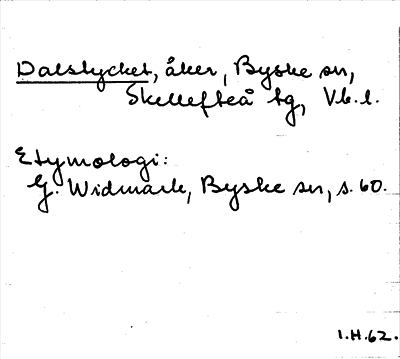 Dalstycket, åker, Byske sn,
Skellefteå tg, Vb.l.
Etymologi:
G. Widmark, Byske sn, s. 60.
I.H.62.